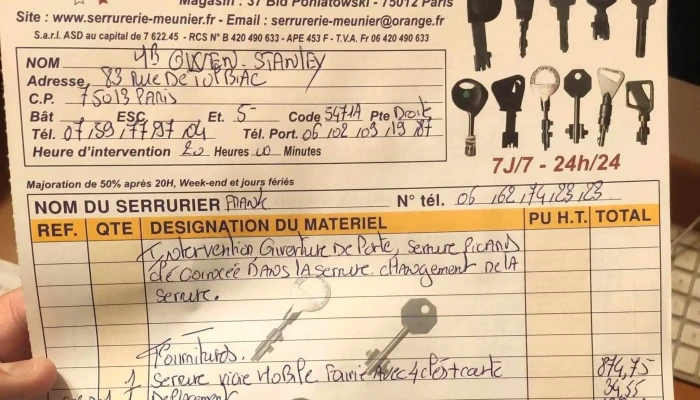 Magasin : 37 Bld Poniatowski - 75012 Paris
Site : www.serrurerie-meunier.fr - Email : serrurerie-meunier@orange.fr
S.a.r.l. ASD au capital de 7 622.45 - RCS N° B 420 490 633 - APE 453 F - T.V.A. Fr 06 420 490 633
NOM OWEN. STANLEY
Adresse, 83 Rue DE TOLBIAC
C.P. 75013 PARIS
Bât ESC Et. 5 Code 5471A Pte Droite
Tél. 07,59,77,97,04 Tél. Port. 06,02,09,19,87
Heure d'intervention 20 Heures 10 Minutes
7J/7 - 24h/24
Majoration de 50% après 20H, Week-end et jours fériés
NOM DU SERRURIER FRANK N° tél. 06,62,74,23,23
REF. QTE DESIGNATION DU MATERIEL PU H.T. TOTAL
Intervention Ouverture De Porte, Serrure Picard
clé coincée DANS lA serrure. cHANgement De lA
serrure.
Fournitures.
1 Serrure Avec 4 clés+carte 874,75
Deplacement 34,55